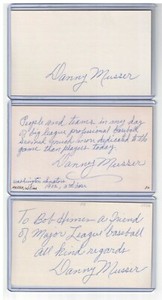 Danny Musser
People and teams in my day
of big league professional baseball
seemed
were dedicated to the
game than players today.
Danny Musser
Washington
To Bob Himes - a friend
of Major League baseball
all kind regards
Danny Musser